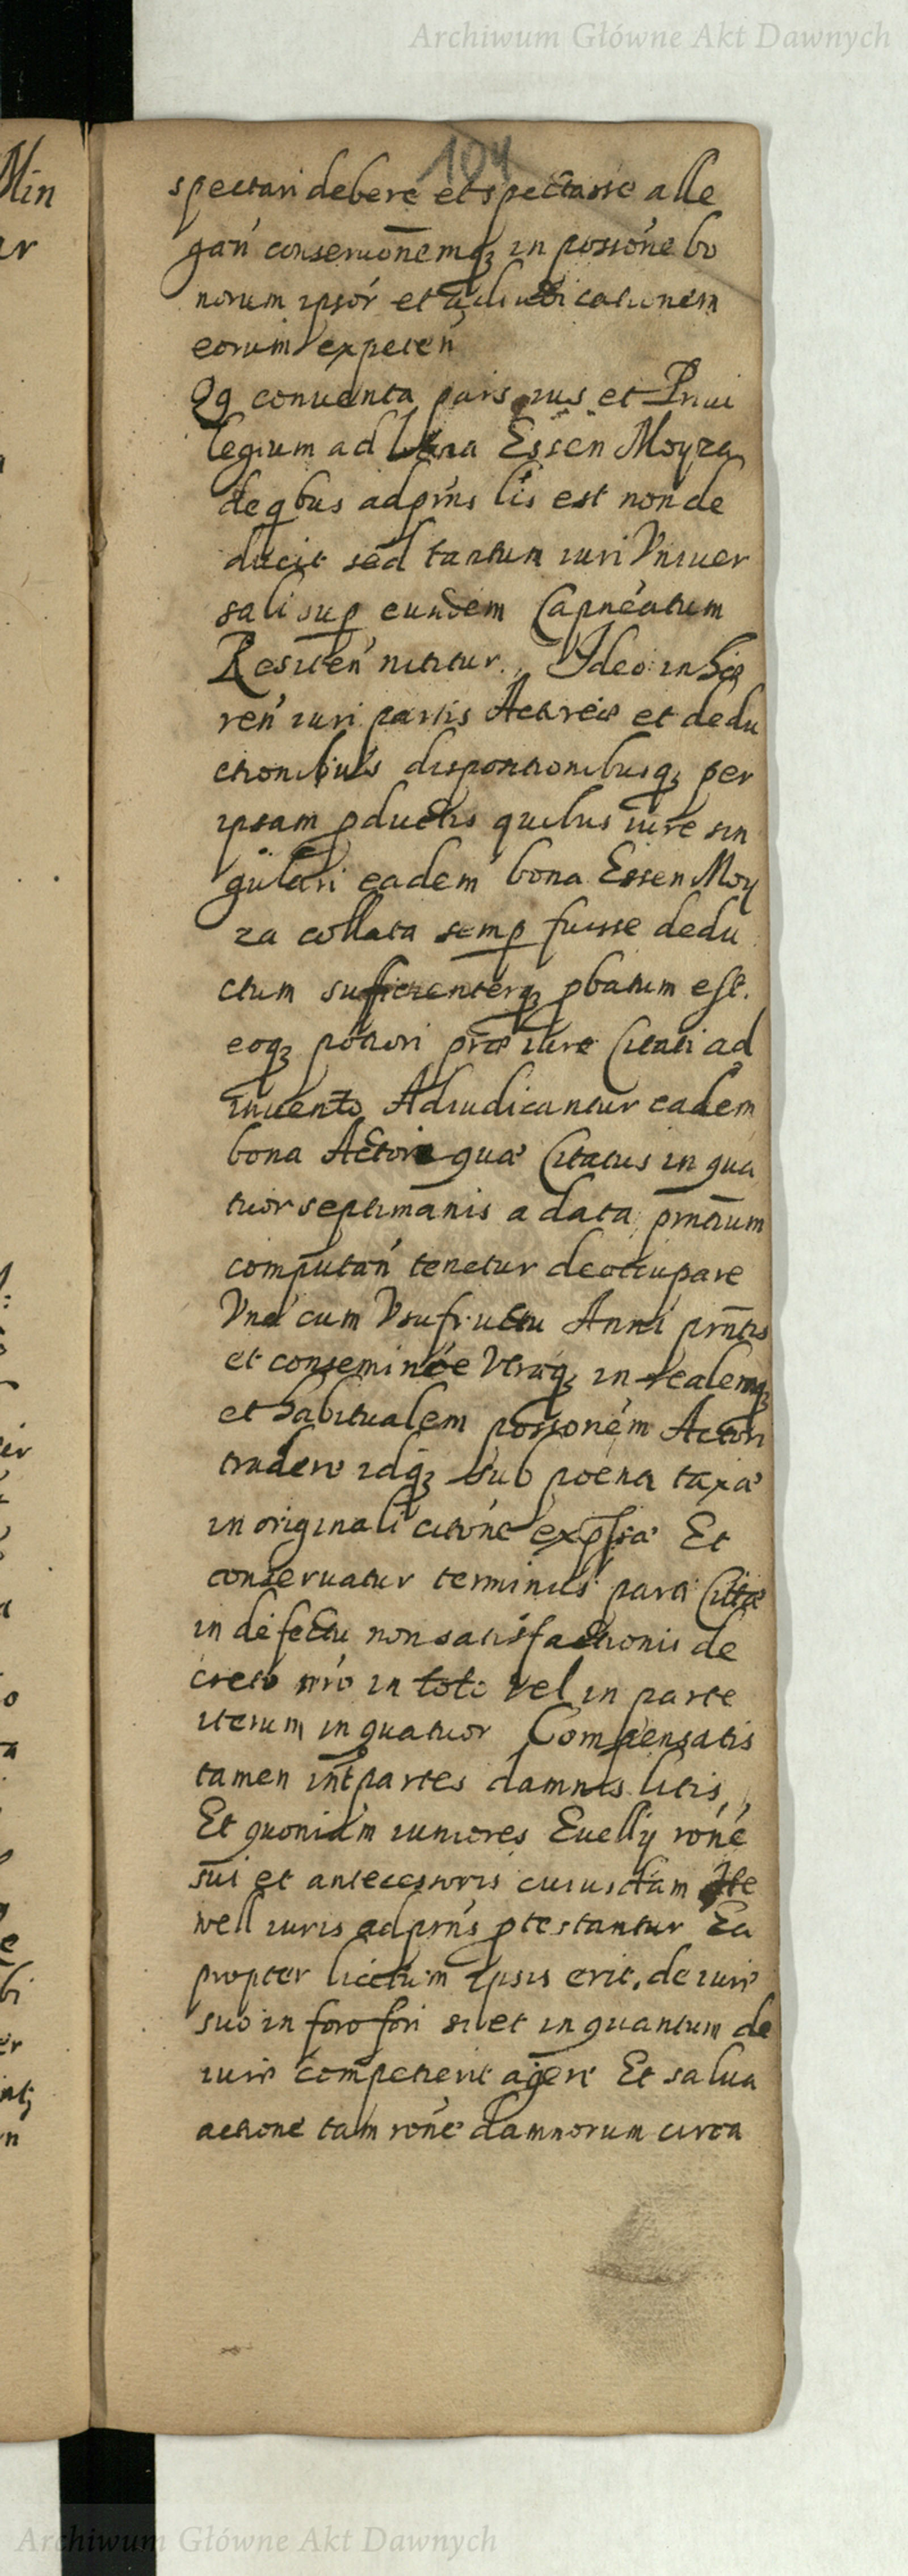 Archiwum Główne Akt Dawnych
104
spectari debere et spectasse alle
gań conseruōnemq₃ in possōne bo
norum ipsor et adiudicationem
eorum expeten
Qq conuenta pars ius et Priui
legium ad bona Essen Moyza
de qbus adpn̄s lis est non de
ducit sed tantum iuri Vniuer
sali sup eundem Capneatum
Resiten nititur. Ideo inhæ
ren iuri partis Actoreæ et dedu
ctionibus dispositionibusq₃ per
ipsam pductis quibus iure sin
gulari eadem bona Essen Moy
za collata semp fuisse dedu
ctum sufficienterq₃ pbatum est.
eoq₃ potiori præ iure Citati ad
inuento Adiudicantur eadem
bona Actori quæ Citatus in qua
tuor septimanis a data pn̄tium
computań tenetur deoccupare
Vna cum Vsufructu Anni pn̄tis
et conseminōe Vtraq₃ in realemq₃
et habitualem possonem Actori
tradere idq₃ sub poena taxa
in originali citōne expssa Et
conseruatur terminus parti Cittæ
in defectu non satisfactionis de
creto nro in toto vel in parte
iterum in quatuor Compensatis
tamen int partes damnis litis,
Et quoniam iuniores Euelly rōne
sui et antecessoris cuiusdam He
well iuris adpn̄s ptestantur Ea
propter licitum ipsis erit, de iure
suo in foro fori si et in quantum de
iure competierit agere Et salua
actione tam rōne damnorum circa
Min
ar
Archiwum Główne Akt Dawnych